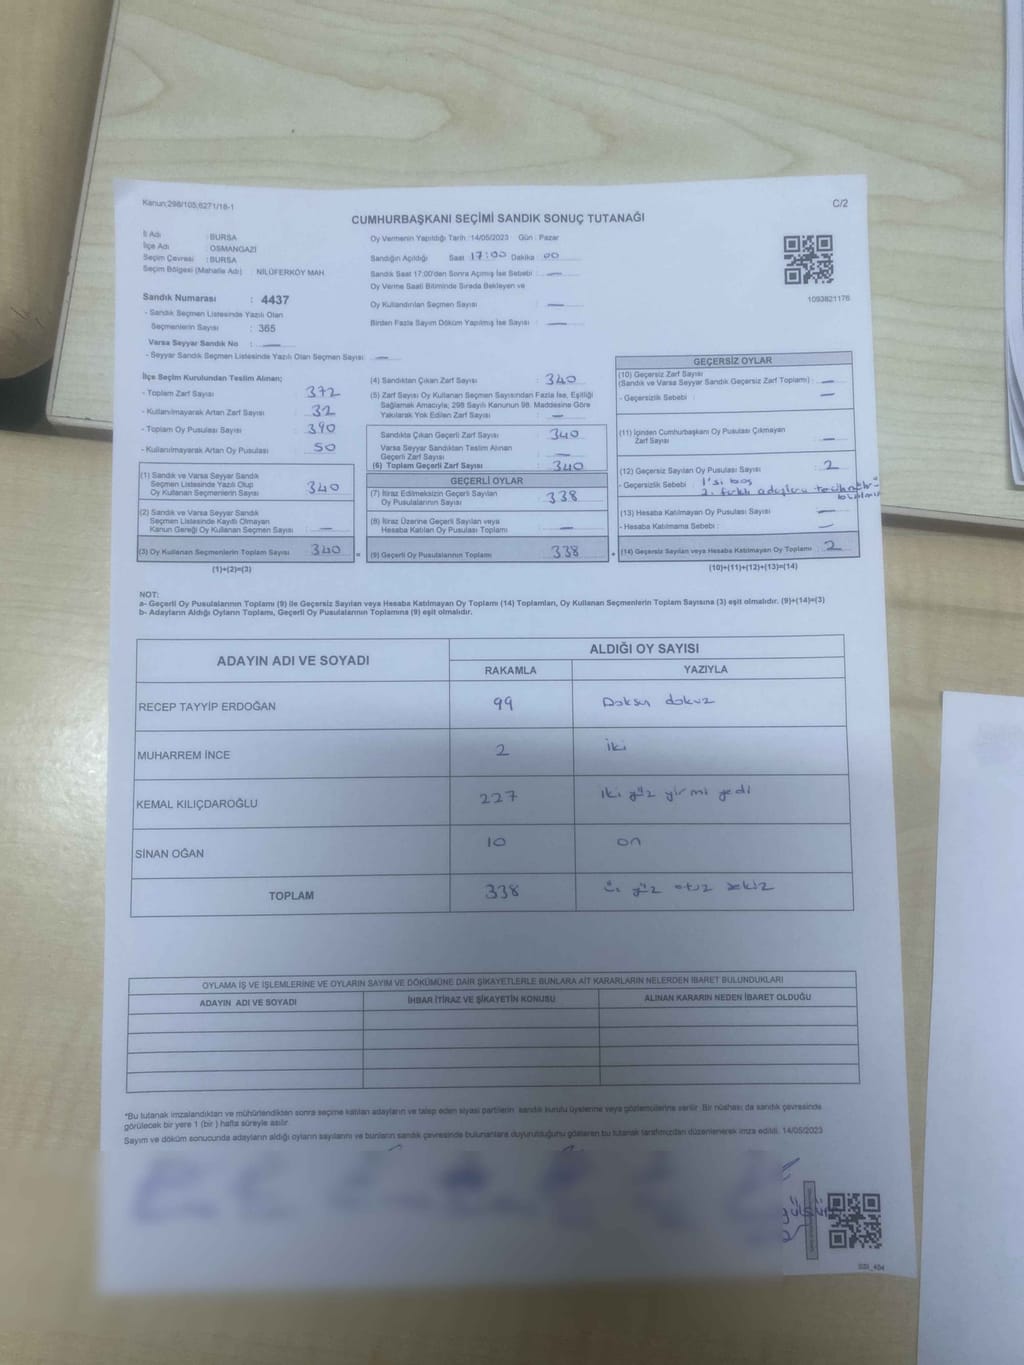 Kanun:298/105,6271/18-1
C/2
CUMHURBAŞKANI SEÇİMİ SANDIK SONUÇ TUTANAĞI
İl Adı : BURSA
İlçe Adı : OSMANGAZİ
Seçim Çevresi : BURSA
Seçim Bölgesi (Mahalle Adı) : NİLÜFERKÖY MAH.
Sandık Numarası : 4437
- Sandık Seçmen Listesinde Yazılı Olan
Seçmenlerin Sayısı : 365
Varsa Seyyar Sandık No : —
- Seyyar Sandık Seçmen Listesinde Yazılı Olan Seçmen Sayısı : —
Oy Vermenin Yapıldığı Tarih :14/05/2023 Gün : Pazar
Sandığın Açıldığı Saat 17:00 Dakika 00
Sandık Saat 17:00'den Sonra Açılmış İse Sebebi : —
Oy Verme Saati Bitiminde Sırada Bekleyen ve
Oy Kullandırılan Seçmen Sayısı : —
Birden Fazla Sayım Döküm Yapılmış İse Sayısı : —
1093821176
İlçe Seçim Kurulundan Teslim Alınan;
- Toplam Zarf Sayısı : 372
- Kullanılmayarak Artan Zarf Sayısı : 32
- Toplam Oy Pusulası Sayısı : 390
- Kullanılmayarak Artan Oy Pusulası : 50
(1) Sandık ve Varsa Seyyar Sandık
Seçmen Listesinde Yazılı Olup
Oy Kullanan Seçmenlerin Sayısı : 340
(2) Sandık ve Varsa Seyyar Sandık
Seçmen Listesinde Kayıtlı Olmayan
Kanun Gereği Oy Kullanan Seçmen Sayısı : —
(3) Oy Kullanan Seçmenlerin Toplam Sayısı : 340
(1)+(2)=(3)
(4) Sandıktan Çıkan Zarf Sayısı : 340
(5) Zarf Sayısı Oy Kullanan Seçmen Sayısından Fazla İse, Eşitliği
Sağlamak Amacıyla; 298 Sayılı Kanunun 98. Maddesine Göre
Yakılarak Yok Edilen Zarf Sayısı : —
Sandıkta Çıkan Geçerli Zarf Sayısı : 340
Varsa Seyyar Sandıktan Teslim Alınan
Geçerli Zarf Sayısı : —
(6) Toplam Geçerli Zarf Sayısı : 340
GEÇERLİ OYLAR
(7) İtiraz Edilmeksizin Geçerli Sayılan
Oy Pusulalarının Sayısı : 338
(8) İtiraz Üzerine Geçerli Sayılan veya
Hesaba Katılan Oy Pusulaları Toplamı : —
= (9) Geçerli Oy Pusulalarının Toplamı : 338
GEÇERSİZ OYLAR
(10) Geçersiz Zarf Sayısı
(Sandık ve Varsa Seyyar Sandık Geçersiz Zarf Toplamı) : —
- Geçersizlik Sebebi : —
(11) İçinden Cumhurbaşkanı Oy Pusulası Çıkmayan
Zarf Sayısı : —
(12) Geçersiz Sayılan Oy Pusulası Sayısı : 2
- Geçersizlik Sebebi : 1'si boş
(13) Hesaba Katılmayan Oy Pusulası Sayısı : —
- Hesaba Katılmama Sebebi : —
+ (14) Geçersiz Sayılan veya Hesaba Katılmayan Oy Toplamı : 2
(10)+(11)+(12)+(13)=(14)
NOT:
a- Geçerli Oy Pusulalarının Toplamı (9) ile Geçersiz Sayılan veya Hesaba Katılmayan Oy Toplamı (14) Toplamları, Oy Kullanan Seçmenlerin Toplam Sayısına (3) eşit olmalıdır. (9)+(14)=(3)
b- Adayların Aldığı Oyların Toplamı, Geçerli Oy Pusulalarının Toplamına (9) eşit olmalıdır.
ADAYIN ADI VE SOYADI ALDIĞI OY SAYISI
RAKAMLA YAZIYLA
RECEP TAYYİP ERDOĞAN 99 Doksan dokuz
MUHARREM İNCE 2 iki
KEMAL KILIÇDAROĞLU 227 iki yüz yirmi yedi
SİNAN OĞAN 10 on
TOPLAM 338 üç yüz otuz sekiz
OYLAMA İŞ VE İŞLEMLERİNE VE OYLARIN SAYIM VE DÖKÜMÜNE DAİR ŞİKAYETLERLE BUNLARA AİT KARARLARIN NELERDEN İBARET BULUNDUKLARI
ADAYIN ADI VE SOYADI İHBAR İTİRAZ VE ŞİKAYETİN KONUSU ALINAN KARARIN NEDEN İBARET OLDUĞU
*Bu tutanak imzalandıktan ve mühürlendikten sonra seçime katılan adayların ve talep eden siyasi partilerin sandık kurulu üyelerine veya gözlemcilerine verilir. Bir nüshası da sandık çevresinde
görülecek bir yere 1 (bir ) hafta süreyle asılır.
Sayım ve döküm sonucunda adayların aldığı oyların sayılarını ve bunların sandık çevresinde bulunanlara duyurulduğunu gösteren bu tutanak tarafımızdan düzenlenerek imza edildi. 14/05/2023